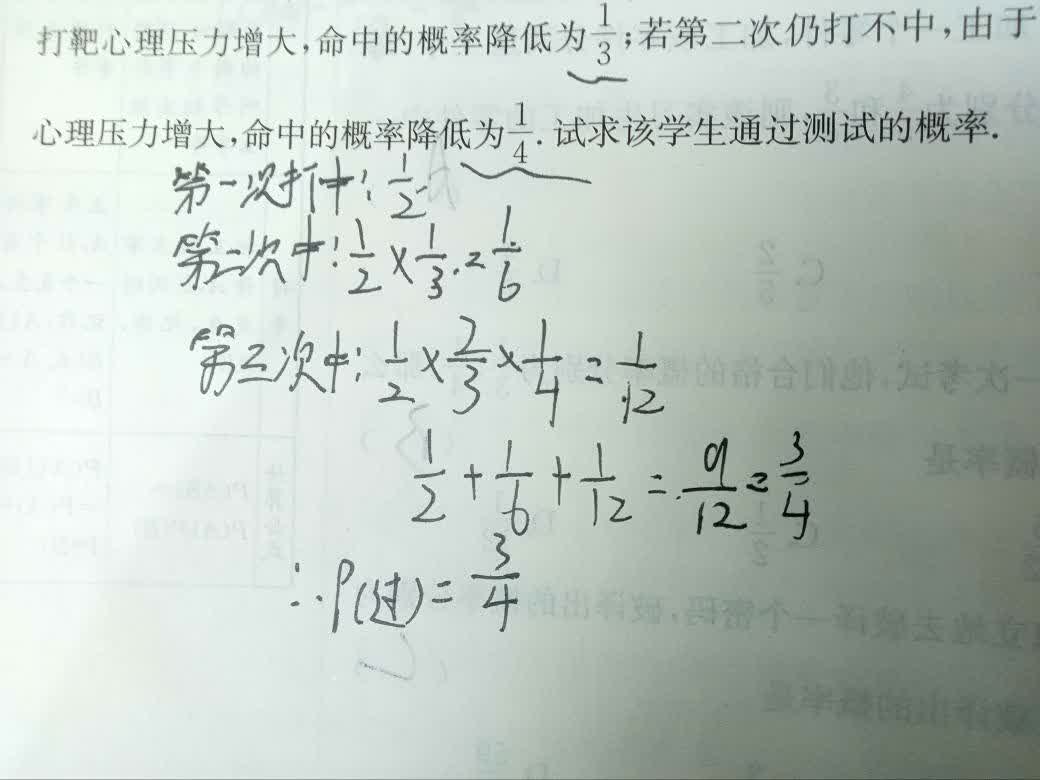 打靶心理压力增大,命中的概率降低为1/3;若第二次仍打不中,由于
心理压力增大,命中的概率降低为1/4.试求该学生通过测试的概率.
第一次打中:1/2
第二次中:1/2×1/3=1/6
第三次中:1/2×2/3×1/4=1/12
1/2+1/6+1/12=9/12=3/4
∴P(过)=3/4